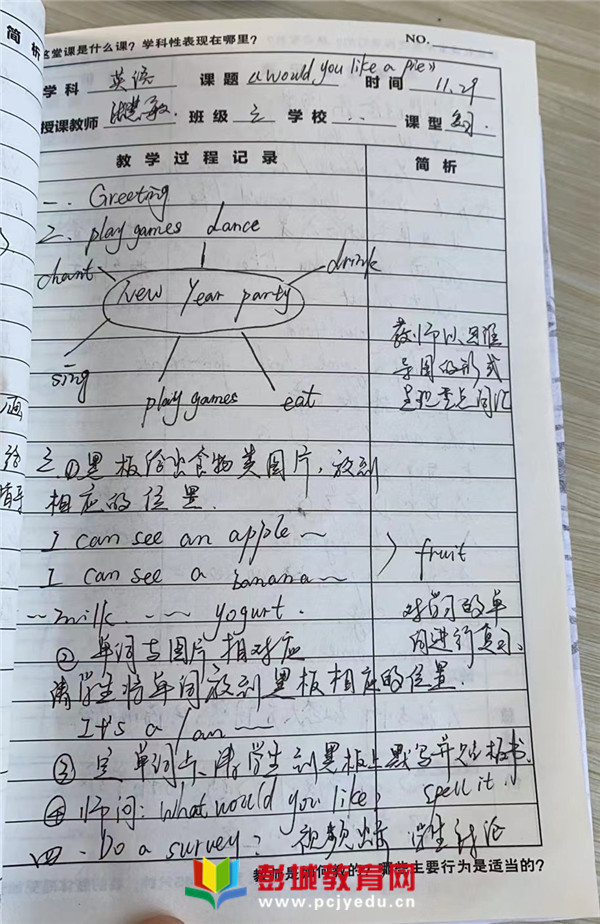 简析
这堂课是什么课？学科性表现在哪里？
NO.
学科 英语 课题 《Would you like a pie》 时间 11.29
授课教师 班级 三 学校 .. 课型 复习.
教学过程记录 简析
一. Greeting
二. play games dance
chant drink
New Year party
sing
play games eat
教师以思维
导图的形式
重点词汇
三. ①黑板给出食物类图片, 放到
相应的位置.
I can see an apple ~
I can see a banana ~
fruit
~ milk. ~ ~ yogurt.
②单词与图片相对应
对学习的单
词进行复习、
请学生将单词放到黑板相应的位置.
It's a / an ~
③ 单词后、请学生到黑板上默写并板书.
④师问: What would you like? spell it.
四. Do a survey: 视频出示 学生讨论
教师是如何教的？哪些主要行为是适当的？
彭城教育网
www.pcjyedu.cn
画
给
指导